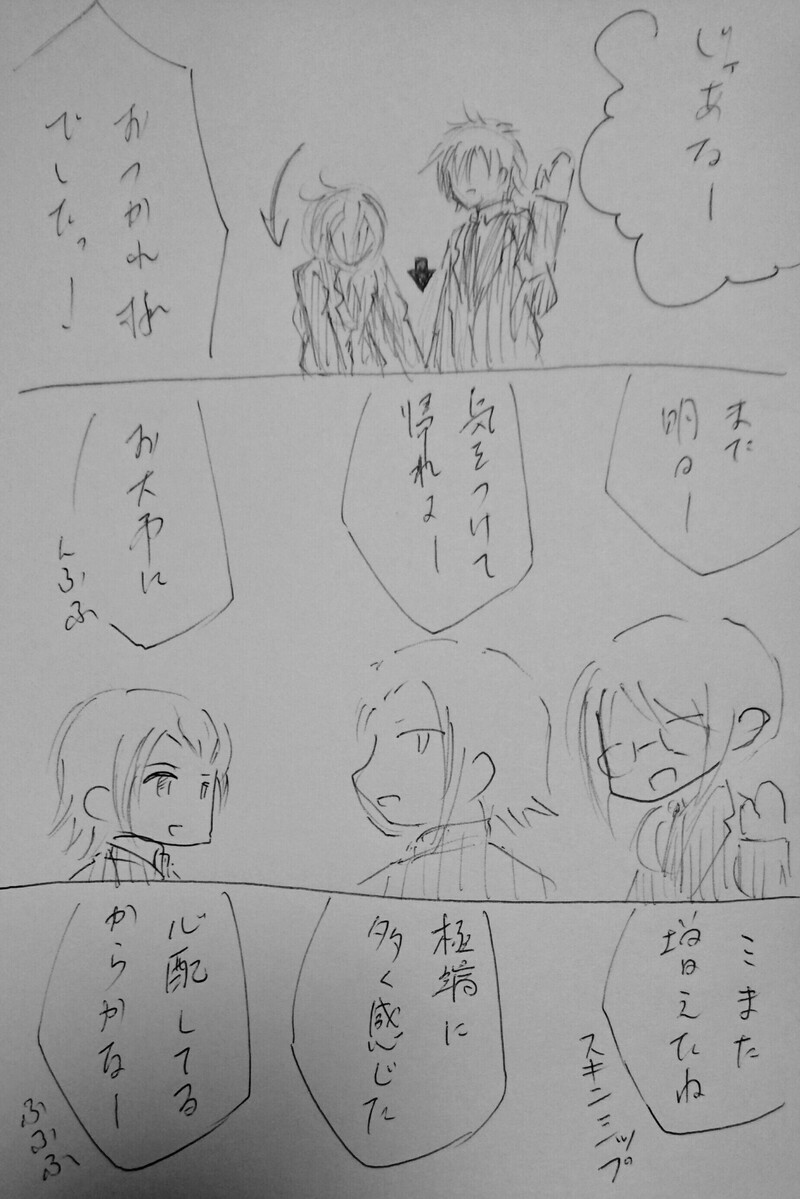 じゃあなー
おつかれ様
でしたっ！
また
明日ー
気をつけて
帰れよー
お大事に
んふふ
こまた
増えたね
スキンシップ
極端に
多く感じた
心配してる
からかなー
ふふふ